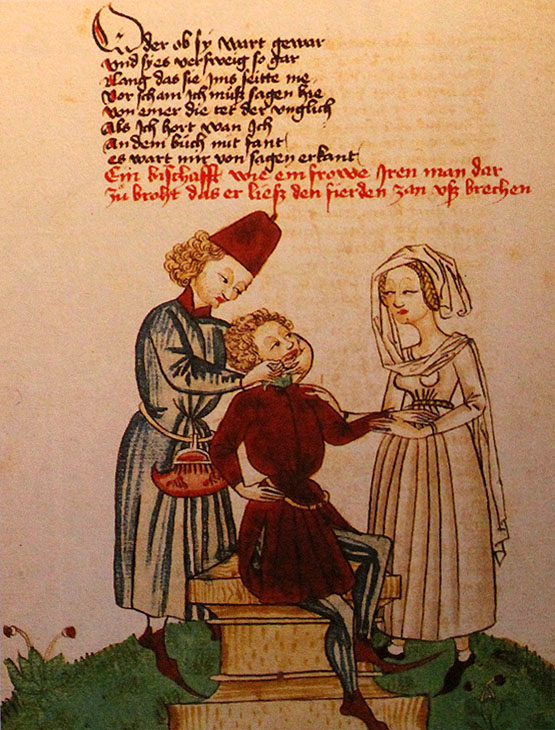 Oder ob sy wart gewar
Vnd sy es versweig so gar
das sie ims seitte me
Vor scham Ich muß sagen hie
von einer die tet der vnglich
Als Ich hort wan Ich
An dem büch nit fant
es wart mir von sagen erkant
Ein bischafft wie ein frowe Iren man dar
zu broht das er ließ den fierden zan vß brechen